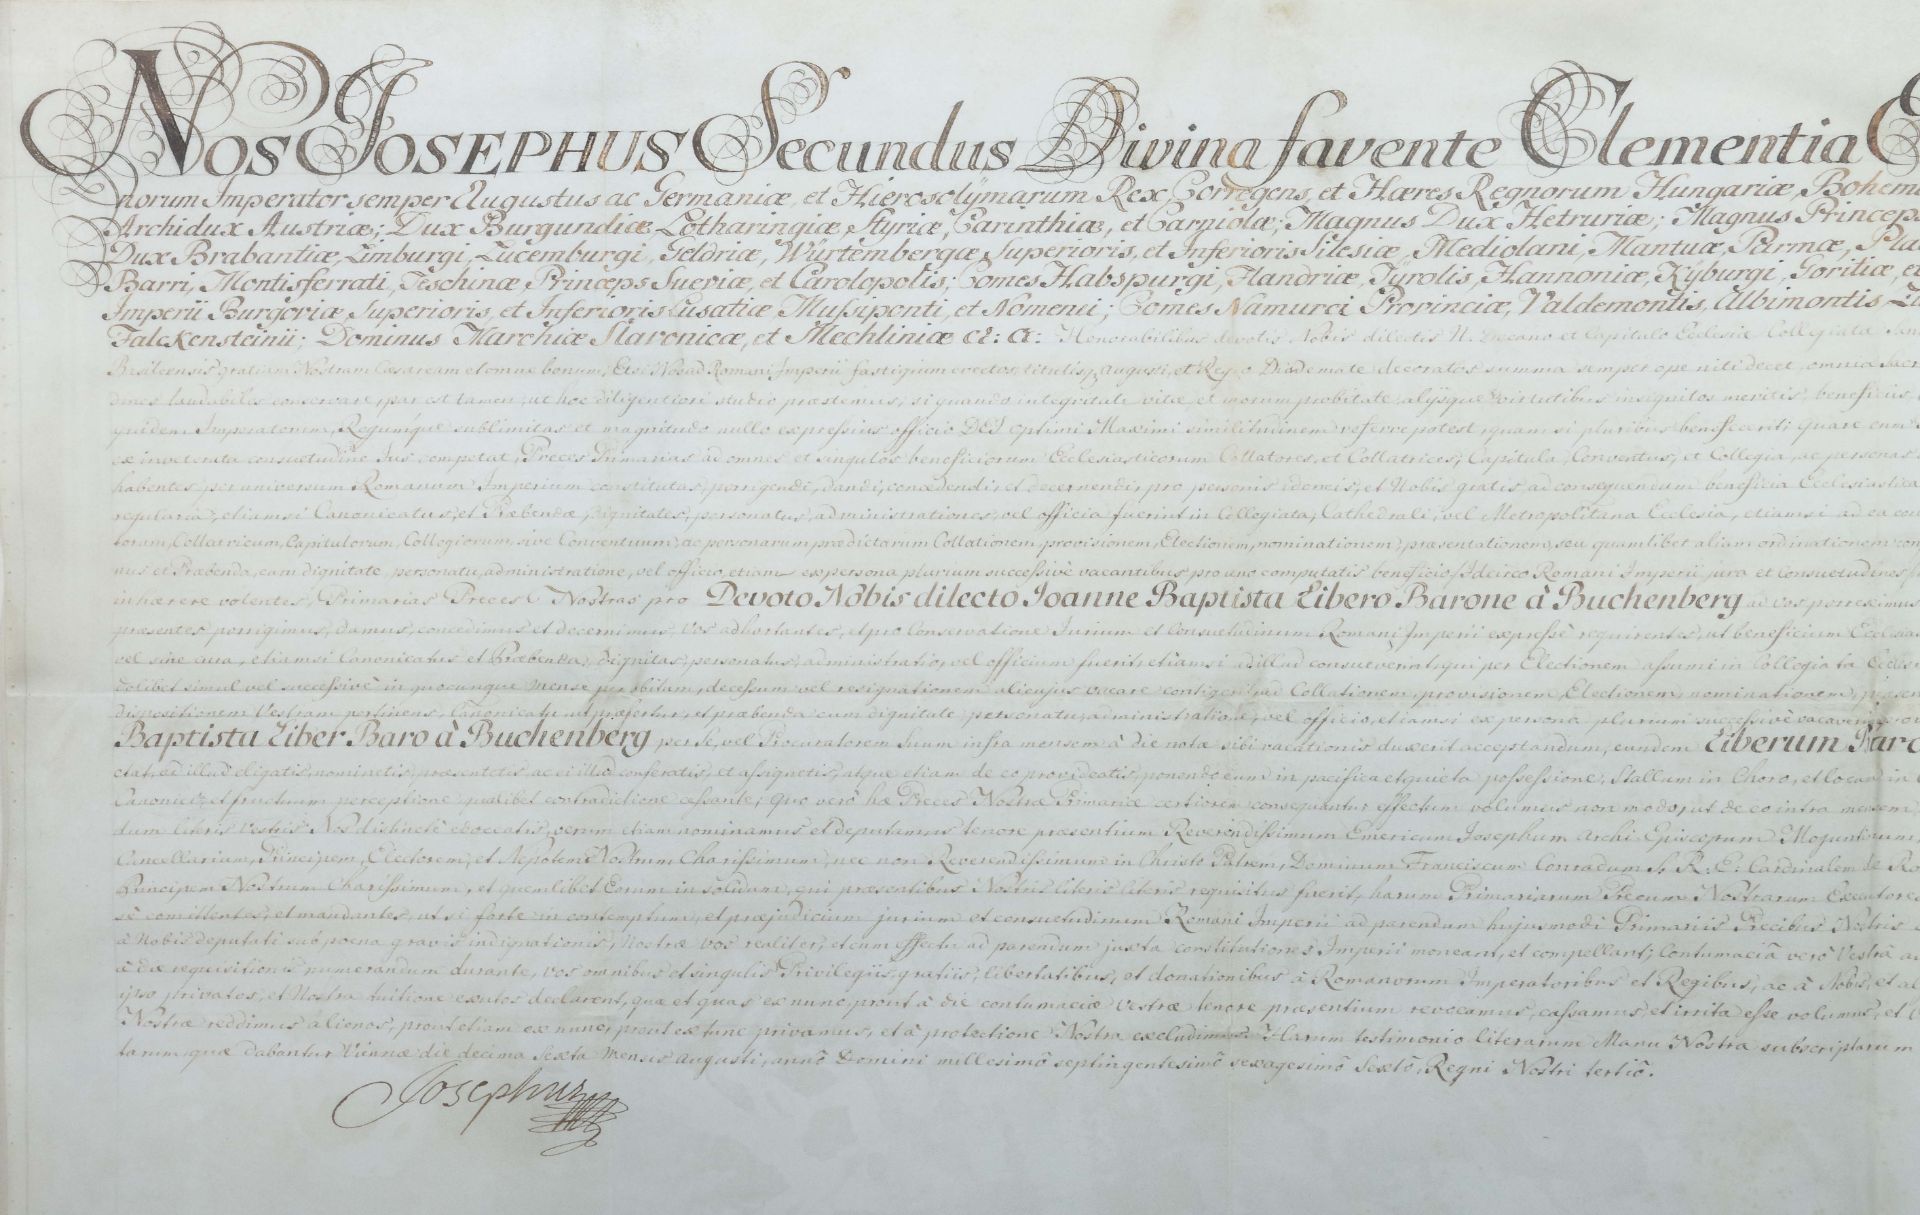 Nos Josephus Secundus Divina favente Clementia E
norum Imperator semper Augustus ac Germaniæ, et Hierosolÿmarum Rex, Corregens, et Hæres Regnorum Hungariæ, Bohem
Archidux Austriæ; Dux Burgundiæ, Lotharingiæ, Styriæ, Carinthiæ, et Carniolæ; Magnus Dux Hetruriæ; Magnus Princeps
Dux Brabantiæ, Limburgi, Lucemburgi, Geldriæ, Würtembergæ, Superioris, et Inferioris Silesiæ, Mediolani, Mantuæ, Parmæ, Pla
Barri, Montisferrati, Teschinæ, Princeps Sueviæ, et Carolopolis; Comes Habspurgi, Flandriæ, Tÿrolis, Hannoniæ, Kÿburgi, Goritiæ, et
Imperii Burgoviæ, Superioris, et Inferioris Lusatiæ, Mussiponti, et Nomenii; Comes Namurci Provinciæ, Valdemontis, Albimontis,
Falckensteinii; Dominus Marchiæ Slavonicæ, et Mechliniæ &: &: Honorabilibus devotis Nobis dilectis N. Decano et Capitulo Ecclesiæ Collegiatæ
Basileensis gratiam Nostram Cæsaream et omne bonum; Etsi Nos ad Romani Imperii fastigium evectos, titulisq. Augusti, et Regio Diademate decoratos summa semper ope niti decet, omnia
laudabiles conservare, par est tamen, ut hoc diligentiori studio præstemus, si quando integritate vitæ, et morum probitate, alijsque virtutibus insignitos meritis, beneficiis,
quidem Imperatorum, Regumque sublimitas et magnitudo nullo expressius officio DEI Optimi Maximi similitudinem referre potest, quam si pluribus benefecerit; quare cum
ex inveterata consuetudine Jus competat, Preces Primarias ad omnes et singulos beneficiorum Ecclesiasticorum Collatores, et Collatrices, Capitula, Conventus, et Collegia, ac personas
habentes per universum Romanum Imperium constitutas, porrigendi, dandi, concedendi, et decernendi, pro personis idoneis, et Nobis gratis, ad consequendum beneficia Ecclesiastica
regularia, etiamsi Canonicatus, et Præbendæ, dignitates, personatus, administrationes, vel officia fuerint in Collegiata, Cathedrali, vel Metropolitana Ecclesia, etiamsi ad ea
torum, Collatricum, Capitulorum, Collegiorum, sive Conventuum, ac personarum prædictarum Collationem, provisionem, Electionem, nominationem, præsentationem, seu quamlibet aliam ordinationem
nus et Præbenda, cum dignitate, personatu, administratione, vel officio, etiam ex persona plurium successivè vacantibus pro uno computatis beneficio; Idcirco Romani Imperii jura et Consuetudines
inhærere volentes, Primarias Preces Nostras pro Devoto Nobis dilecto Joanne Baptista Libero Barone à Buchenberg ad vos porreximus
præsentes porrigimus, damus, concedimus et decernimus, Vos adhortantes, et pro Conservatione Jurium et Consuetudinum Romani Imperii expressè requirentes, ut beneficium
vel sine cura, etiamsi Canonicatus et Præbenda, dignitas, personatus, administratio, vel officium fuerit, etiamsi ad illud consueverit, qui per Electionem assumi in Collegiata
dolibet simul vel successivè in quocunque mense per obitum, decessum vel resignationem alicujus vacare contigerit, ad Collationem, provisionem, Electionem, nominationem,
dispositionem Vestram pertinens, Canonicatu ut præfertur, et præbenda cum dignitate personatu, administratione, vel officio, etiamsi ex persona plurium successivè
Baptista Liber Baro à Buchenberg per se, vel Procuratorem suum infra mensem à die notæ sibi vacationis duxerit acceptandum, eundem Liberum Baro
ctat, ad illud eligatis, nominetis, præsentetis, ac ei illud conferatis, et assignetis, atque etiam de eo provideatis, ponendo eum in pacifica et quieta possessione, Stallum in Choro, et locum in
Canonici, et fructuum perceptione qualibet contradictione cessante; Quo verò hæ Preces Nostræ Primariæ certiorem consequantur effectum volumus non modo, ut de eo intra mensem
dum literis Vestris Nos distinctè edoceatis, verum etiam nominamus et deputamus tenore præsentium Reverendissimum Emericum Josephum Archi Episcopum Moguntinum,
Cancellarium, Principem, Electorem, et Nepotem Nostrum Charissimum, nec non Reverendissimum in Christo Patrem, Dominum Franciscum Conradum S. R. E. Cardinalem de Ro
Principem Nostrum Charissimum, et quemlibet Eorum in solidum, qui præsentibus Nostris literis literis requisitus fuerit, harum Primariarum Precum Nostrarum Executores
sè comittentes, et mandantes, ut si forte in contemptum, et præjudicium jurium et consuetudinum Romani Imperii ad parendum hujusmodi Primariis Precibus Nostris
à Nobis deputati sub poena gravis indignationis Nostræ vos realiter, et cum effectu ad parendum juxta constitutiones Imperii moneant, et compellant; Contumaciâ verò Vestrâ
à die requisitionis numerandum durante, vos omnibus et singulis Privilegiis, gratiis, libertatibus, et donationibus à Romanorum Imperatoribus et Regibus, ac à Nobis, et
ipso privatos, et Nostra tuitione exutos declarent, quæ et quas ex nunc, prout à die contumaciæ Vestræ tenore præsentium revocamus, cassamus, et irrita esse volumus, et
Nostræ reddimus alienos, prout etiam ex nunc, prout ex tunc privamus, et à protectione Nostra excludimus. Harum testimonio literarum Manu Nostra subscriptarum
tarum, quæ dabantur Viennæ die decima Sexta Mensis Augusti, annô Domini millesimô septingentesimô sexagesimô Sextô, Regni Nostri tertiô.
Josephus